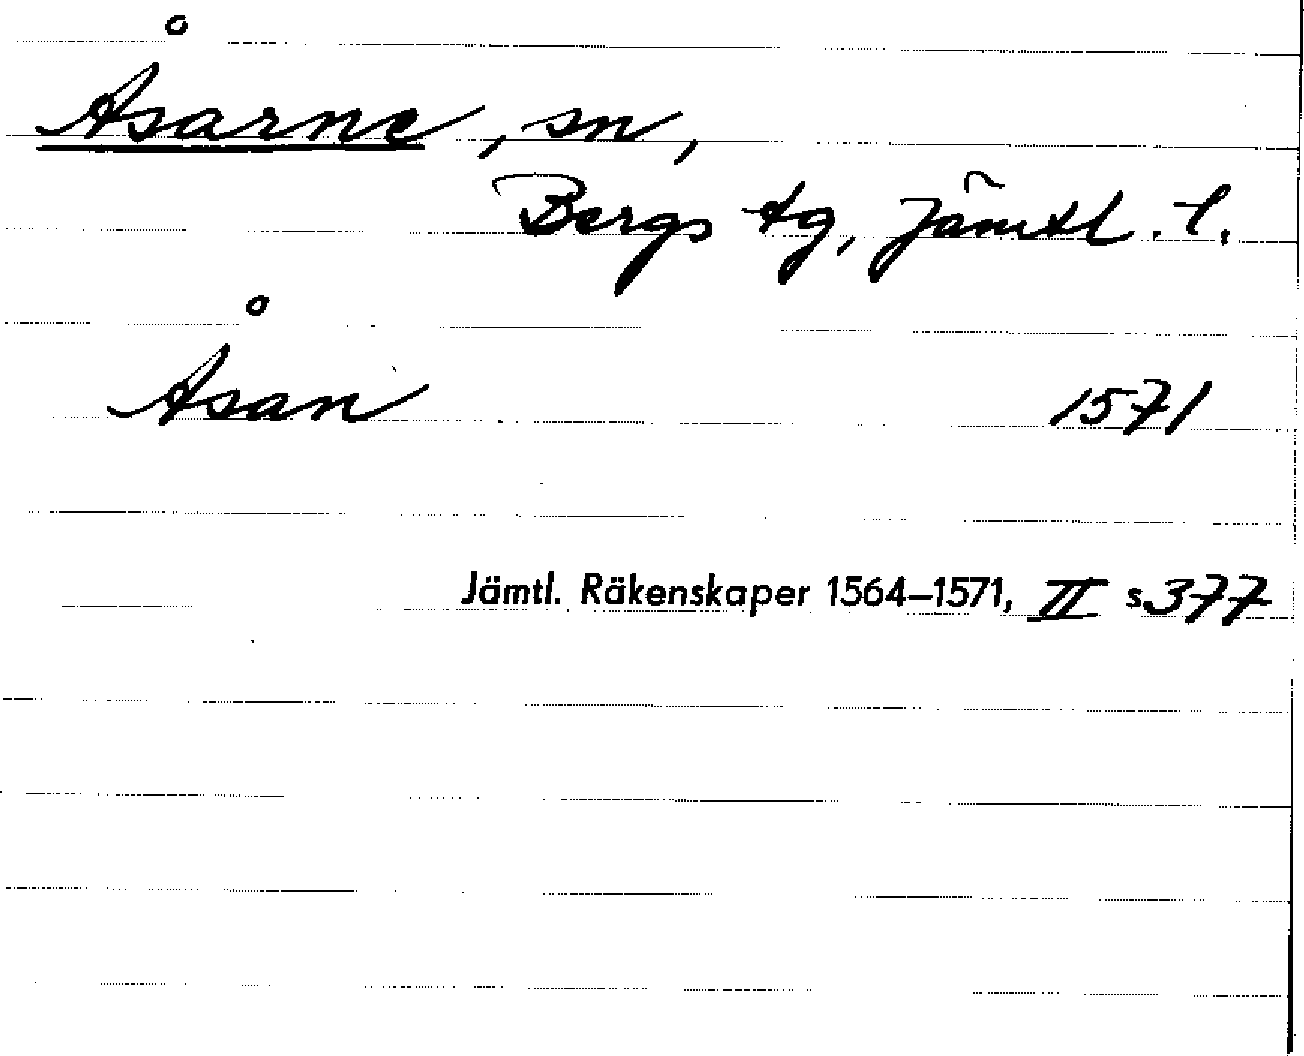 Åsarne, sn,
Bergs tg, Jämtl. l.
Åsan 1571
Jämtl. Räkenskaper 1564–1571, II s. 377